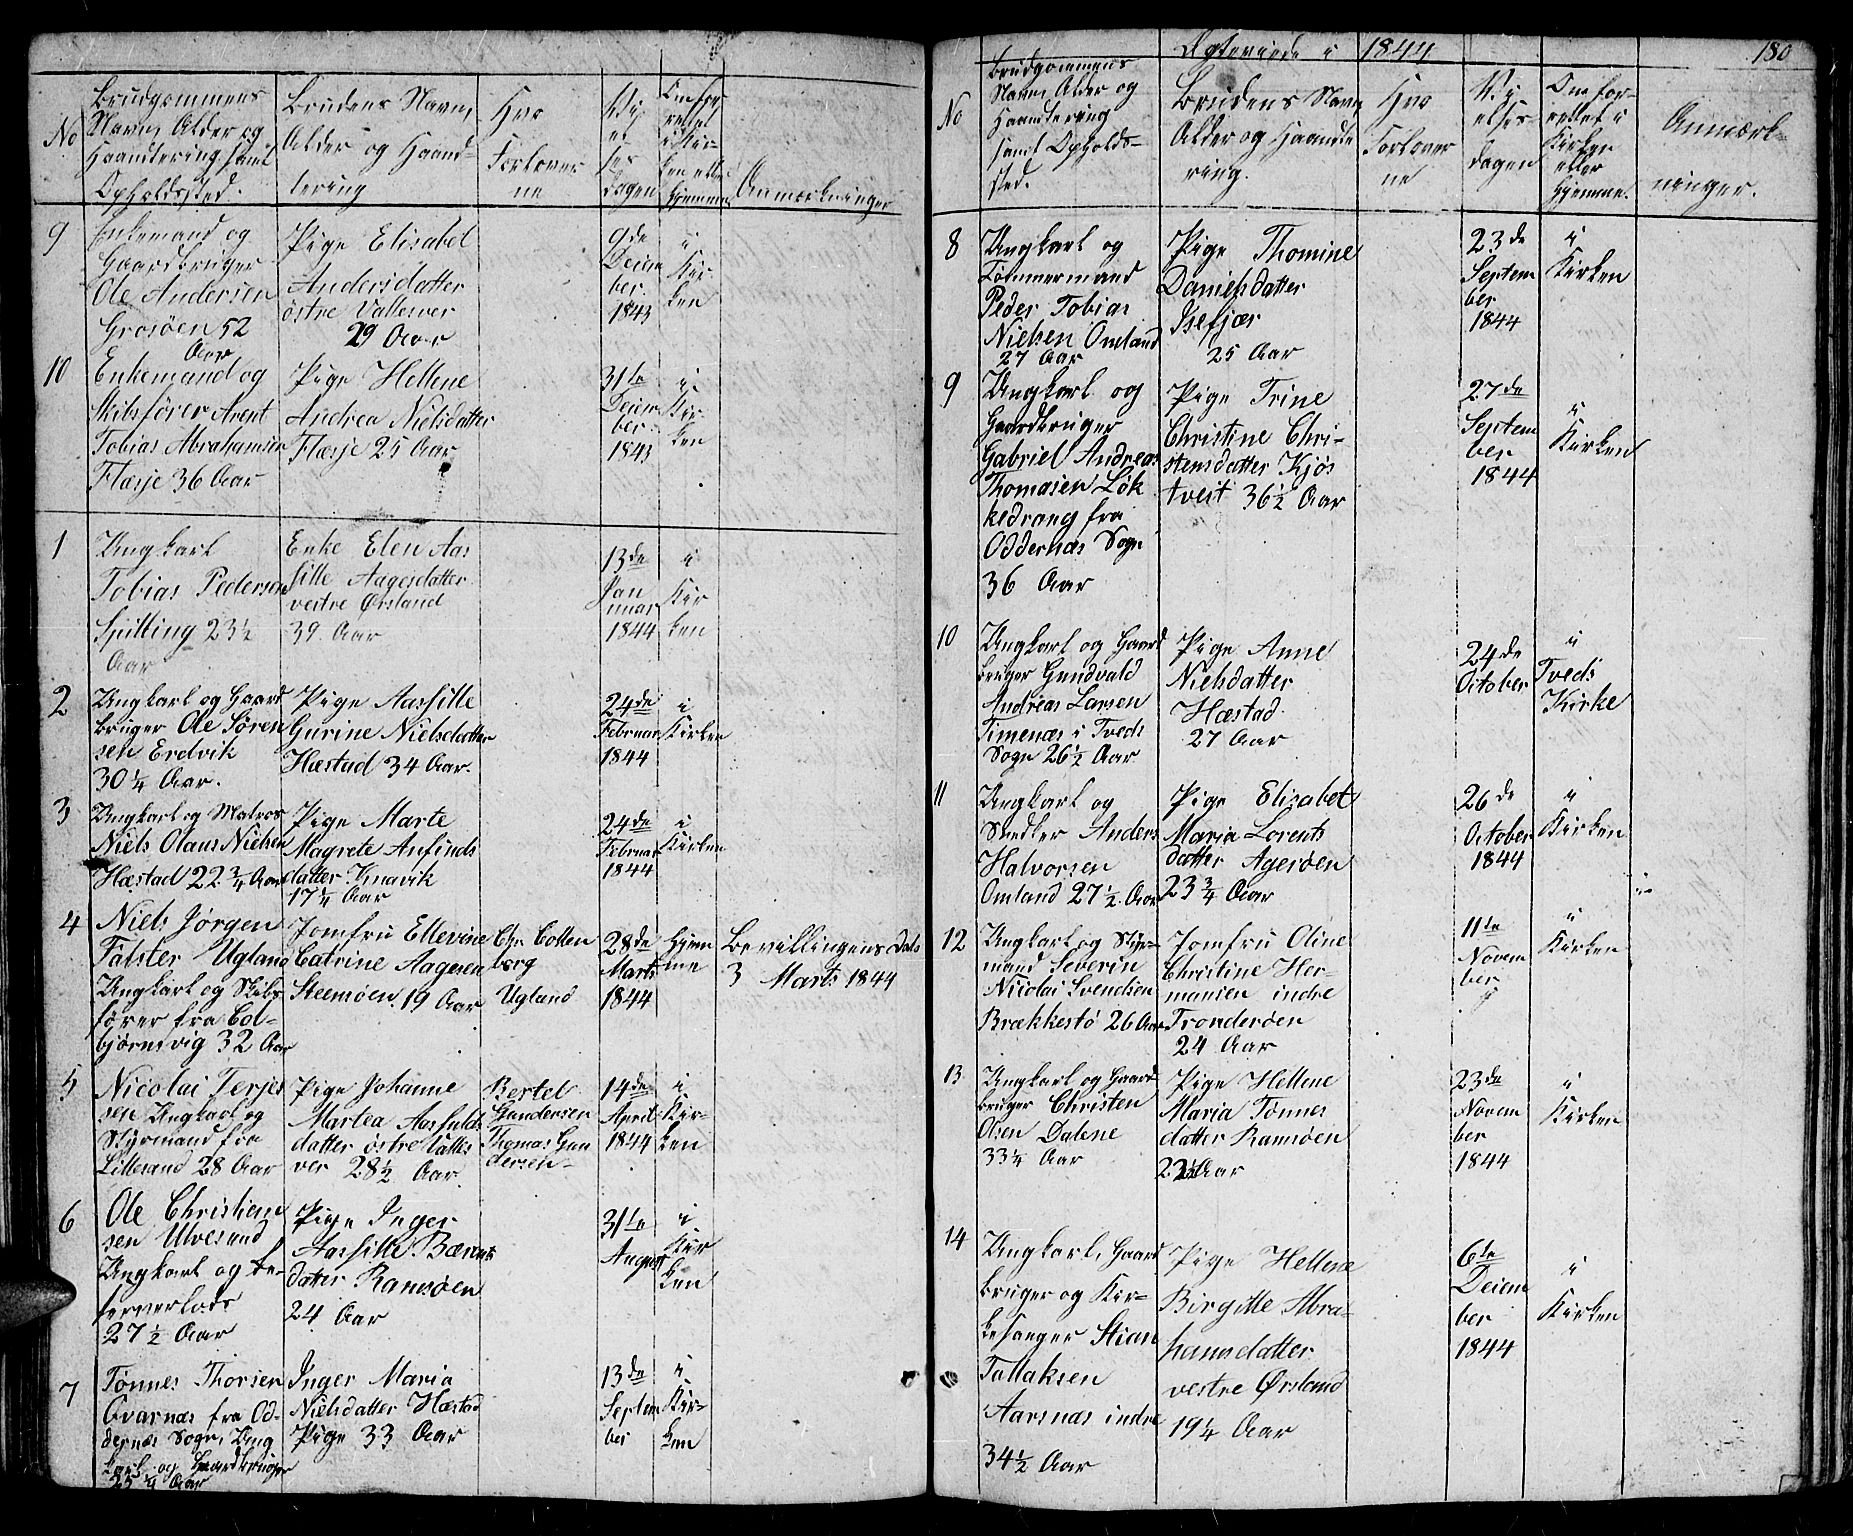 No
Brudgommens
Navn, Alder og
Haandtering samt
Opholdssted.
Brudens Navn,
Alder og Haand-
tering
Hvo
Forlover
ne
Vi
el
ses
dagen
Om for
rettet
i Kir-
ken eller
Hjemme
Anmærkninger
9
Enkemand og
Gaardbruger
Ole Andersen
Grosöen 52
Aar
Pige Elisabet
Andersdatter
östre Vallesver
29 Aar
9de
Decem
ber.
1843
i
Kir-
ken
10
Enkemand og
Skibsförer Arent
Tobias Abrahamsen
Flasje 36 Aar
Pige Hellene
Andrea Nielsdatter
Flæsje 25 Aar
31te
Decem
ber.
1843
i
Kir-
ken
1
Ungkarl
Tobias Pedersen
Spilling 23½
Aar
Enke Elen Aas
sille Aagesdatter
vestre Ørsland
39 Aar
13de
Jan
nuar
1844
i
Kir
ken
2
Ungkarl og Gaard
bruger Ole Sören
sen Eredvik
30¼ Aar.
Pige Aassille
Gurine Nielsdatter
Hæstad 34 Aar.
24de
Februar
1844
i
Kirken
3
Ungkarl og Matros
Niels Olaus Nielsen
Hæstad 22¾ Aar
Pige Marte
Magrete Anfinds
datter Knavik
17¼ Aar
24de
Februar
1844
i
Kirken
4
Niels Jörgen
Falster Ugland
Ungkarl og Skibs
förer fra Col-
björnsvig 32 Aar
Jomfru Ellevine
Catrine Aagesen
Steemöen 19 Aar
Chr Cotten
borg
Ugland
28de
Marts
1844
Hjem
me
Bevillingens Dato
3 Marts 1844
5
Nicolai Terjes
sen Ungkarl og
Styrmand fra
Lillesand 28 Aar
Pige Johanne
Martea Aasfulds
datter östre Valles
ver 28½ Aar
Bertel
Gundersen
Thomas Gun
dersen
14de
April
1844
i
Kir-
ken
6
Ole Christian
sen Ulvesund
Ungkarl og Re-
serverlods
27½ Aar
Pige Inger
Aassille Bærents
datter Ramsöen
24 Aar
31te
August
i
Kir
ken
7
Tönnes Thorsen
Qvarnæs fra Od-
dernæs Sogn, Ung
karl og Gaardbruger
25¼ Aar
Inger Maria
Nielsdatter Hæstad
Pige 33 Aar
13de
Septem
ber
i
Kir-
ken
Ægteviede i 1844
180
No
Brudgommens
Navn, Alder og
Haandtering
samt Opholds-
sted.
Brudens Navn
Alder og Haandte
ring.
Hvo
Forlover
ne
Vi
elses-
dagen
Om for-
rettet i
Kirken
eller
Hjemme.
Anmærk-
ninger.
8
Ungkarl og
Tömmermand
Peder Tobias
Nielsen Omland
27 Aar
Pige Thomine
Danielsdatter
Isefjær
25 Aar
23de
Septem
ber
1844
i
Kirken
9
Ungkarl og
Gaardbruger
Gabriel Andreas
Thomasen Lök
kedrang fra
Oddernæs Sogn
36 Aar
Pige Trine
Christine Chri-
stensdatter Kjös
tveit 36½ Aar
27de
Septem
ber
1844
i
Kirken
10
Ungkarl og Gaard
bruger Gundvald
Andreas Larsen
Timenæs i Tveds
Sogn 26½ Aar
Pige Anne
Nielsdatter
Hæstad
27 Aar
24de
October
i
Tveds
Kirke
11
Ungkarl og
Snedker Anders
Halvorsen
Omland 27½ Aar
Pige Elisabet
Maria Lorents
datter Ageröen
23¾ Aar
26de
October
1844
i
Kirken
12
Ungkarl og Styr-
mand Severin
Nicolai Svendsen
Brækkestö 26 Aar
Jomfru Oline
Christine Her-
mansen indre
Tronderöen
24 Aar
11te
Novem
ber
i
Kirken
13
Ungkarl og Gaard
bruger Christen
Olsen Dalene
33¼ Aar
Pige Hellene
Maria Tönnes
datter Ramsöen
Aar
23de
Novem
ber
1844
i
Kirken
14
Ungkarl, Gaard
bruger og Kir-
kesanger Stian
Tallaksen
Aarsnæs indre
34½ Aar
Pige Hellene
Birgitte Abra-
hamsdatter
vestre Ørsland
19¼ Aar
6te
Decem
ber
1844
i
Kirken